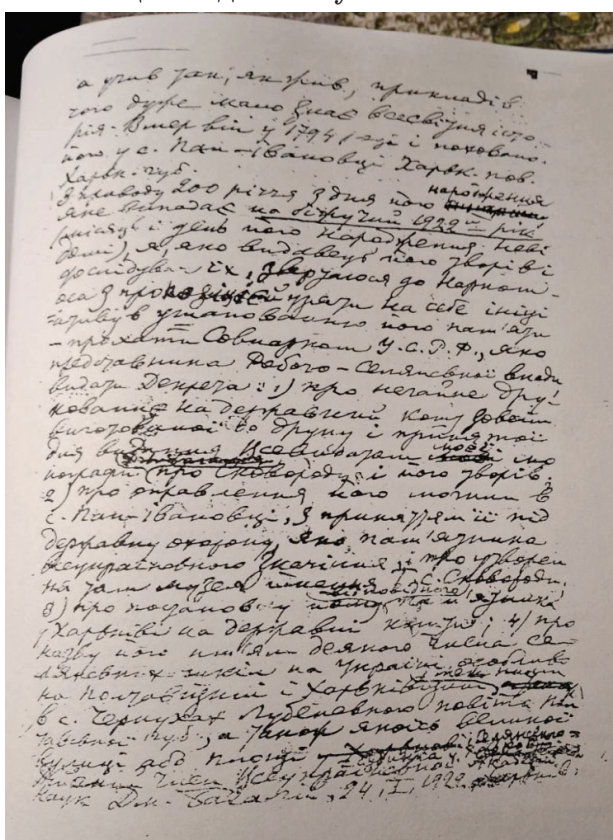 а учив так, як жив, прикладів
чого дуже мало знає всесвітня істо-
рія. Вмер він у 1794 році і поховано
його у с. Пан-Івановці Харьк. пов.
Харьк. губ.
З приводу 200 річчя з дня його народження
яке випадає на біжучий 1922 рік
(місяць і день його народження неві
домі), я, яко видавець його творів і
дослідувач їх, звертаюся до Нарком-
оса з пропозицією узяти на себе ініці
ативу в установленню його пам'яти
- прохати Совнарком У.С.Р.Ф., яко
представника Рабоче-Селянської влади
видати Декрета: 1) про негайне дру-
кование на державний кошт зовсім
виготованої до друку і принятої
для видання Всевидатом моєї мо
нографії про Сковороду і його творів,
2) про оправлення його могили в
с. Пан-Івановці, з приняттям її під
державну охорону, яко пам'ятника
всеукраїнського значіння і про утворен
ня там музея імення Г. С. Сковороди,
3) про постановку відповідного пам'ятника
у Харькові на державні кошти; 4) про
назву його им'ям деякого числа се-
лянських шкіл на Україні, особливо
на Полтавщині і Харьківщині
в с. Чернухах Лубенського повіта Пол
тавської губ., а також якоїсь великої
вулиці або площі
член Всеукраїнської Академії
Наук Дм. Багалій, 24, I, 1922